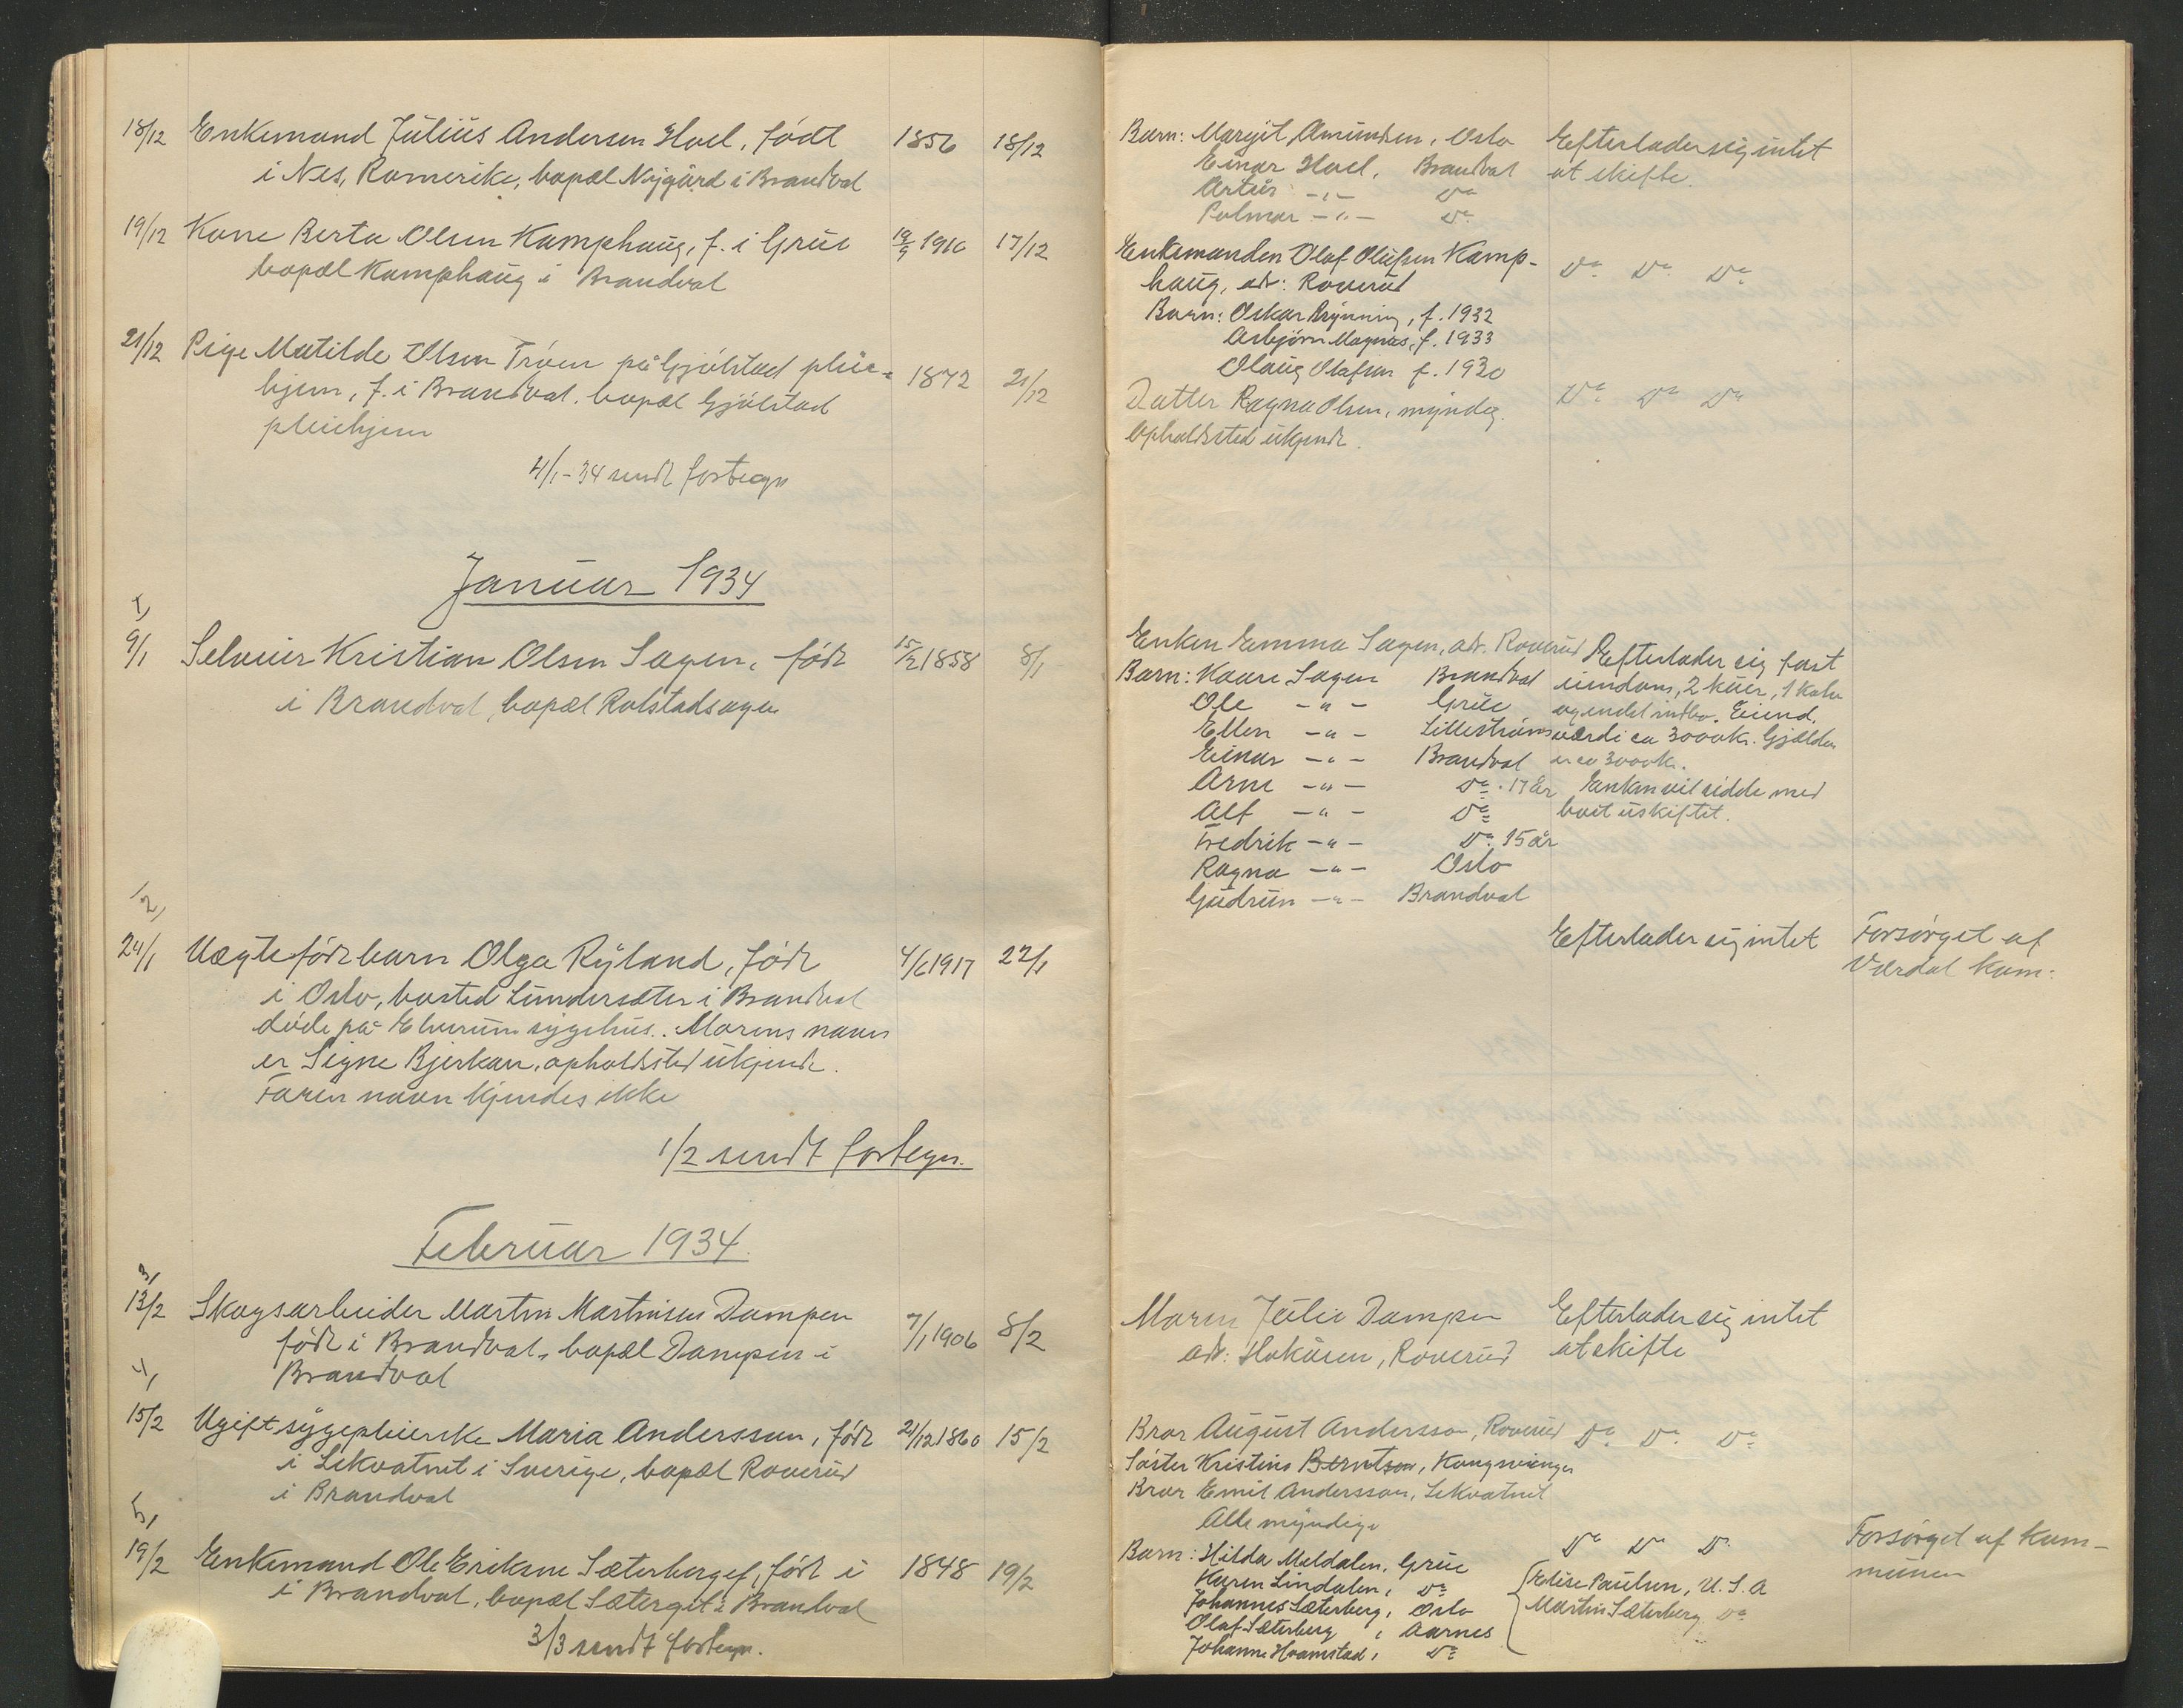 18/12 Enkemand Julius Andersen Hoel, født 1856 18/12
i Nes, Romerike, bopæl Nygård i Brandval
19/12 Kone Berta Olsen Kamphaug, f. i Grue 19/9 1910 17/12
bopæl Kamphaug i Brandval
21/12 Pige Matilde Olsen Trøen på Gjølstad pleie- 1872 21/12
hjem, f. i Brandval, bopæl Gjølstad
pleiehjem
4/1-34 sendt fortegn
Januar 1934
1,
9/1 Selveier Kristian Olsen Sagen, født 15/2 1858 8/1
i Brandval, bopæl Rolstadsagen
2,
24/1 Uægtefødt barn Olga Ryland, født 4/6 1917 22/1
i Oslo, bosted Lundersæter i Brandval
døde på Elverum sygehus. Morens navn
er Signe Bjerkan, opholdsted ukjendt.
Faren navn kjendes ikke
1/2 sendt fortegn.
Februar 1934.
3,
13/2 Skogsarbeider Martin Martinsen Dampen 7/1 1906 8/2
født i Brandval, bopæl Dampen i
Brandval
4,
15/2 Ugift sygepleierske Maria Anderssen, født 21/12 1860 15/2
i Lekvatnet i Sverige, bopæl Roverud
i Brandval
5,
19/2 Enkemand Ole Eriksen Sæterberget, født i 1848 19/2
i Brandval, bopæl Sæterget i Brandval
3/3 sendt fortegn.
Barn: Margit Amundsen, Oslo Efterlader sig intet
Einar Hoel, Brandval at skifte.
Artur -"- Do
Palmar -"- Do
Enkemanden Olaf Olufsen Kamp- Do Do Do
haug, adr: Roverud
Barn: Oskar Brynning, f. 1932
Asbjørn Magnus, f. 1933
Olaug Olafsen f. 1930
Datter Ragna Olsen, myndig. Do Do Do
Opholdsted ukjendt.
Enken Emma Sagen, adr. Roverud Efterlader sig fast
Barn: Kaare Sagen Brandval eiendom, 2 kuer, 1 kalv
Ole -"- Grue og endel indbo. Eiend.
Ellen -"- Lillestrøm værdi ca 3000 kr. Gjælden
Einar -"- Brandval er ca 3000 kr.
Arne -"- Do. 17 år Enken vil sidde med
Alf -"- Do boet uskiftet.
Fredrik -"- Do. 15 år
Ragna -"- Oslo
Gudrun -"- Brandval
Efterlader sig intet Forsørget af
Værdal kom:
Moren Julie Dampen Efterlader sig intet
adr: Hokåsen, Roverud at skifte
Bror August Andersson, Roverud Do Do Do
Søster Kristine Berntsen, Kongsvinger
Bror Emil Andersson, Lekvatnet
Alle myndige
Do Do Do Forsørget af kom-
Barn: Hilda Meldalen, Grue munen
Karen Lindalen, Do Elise Paulsen, U.S.A
Johannes Sæterberg, Oslo Martin Sæterberg Do
Olaf Sæterberg, Aarnes
Johanne Hvamstad, Do